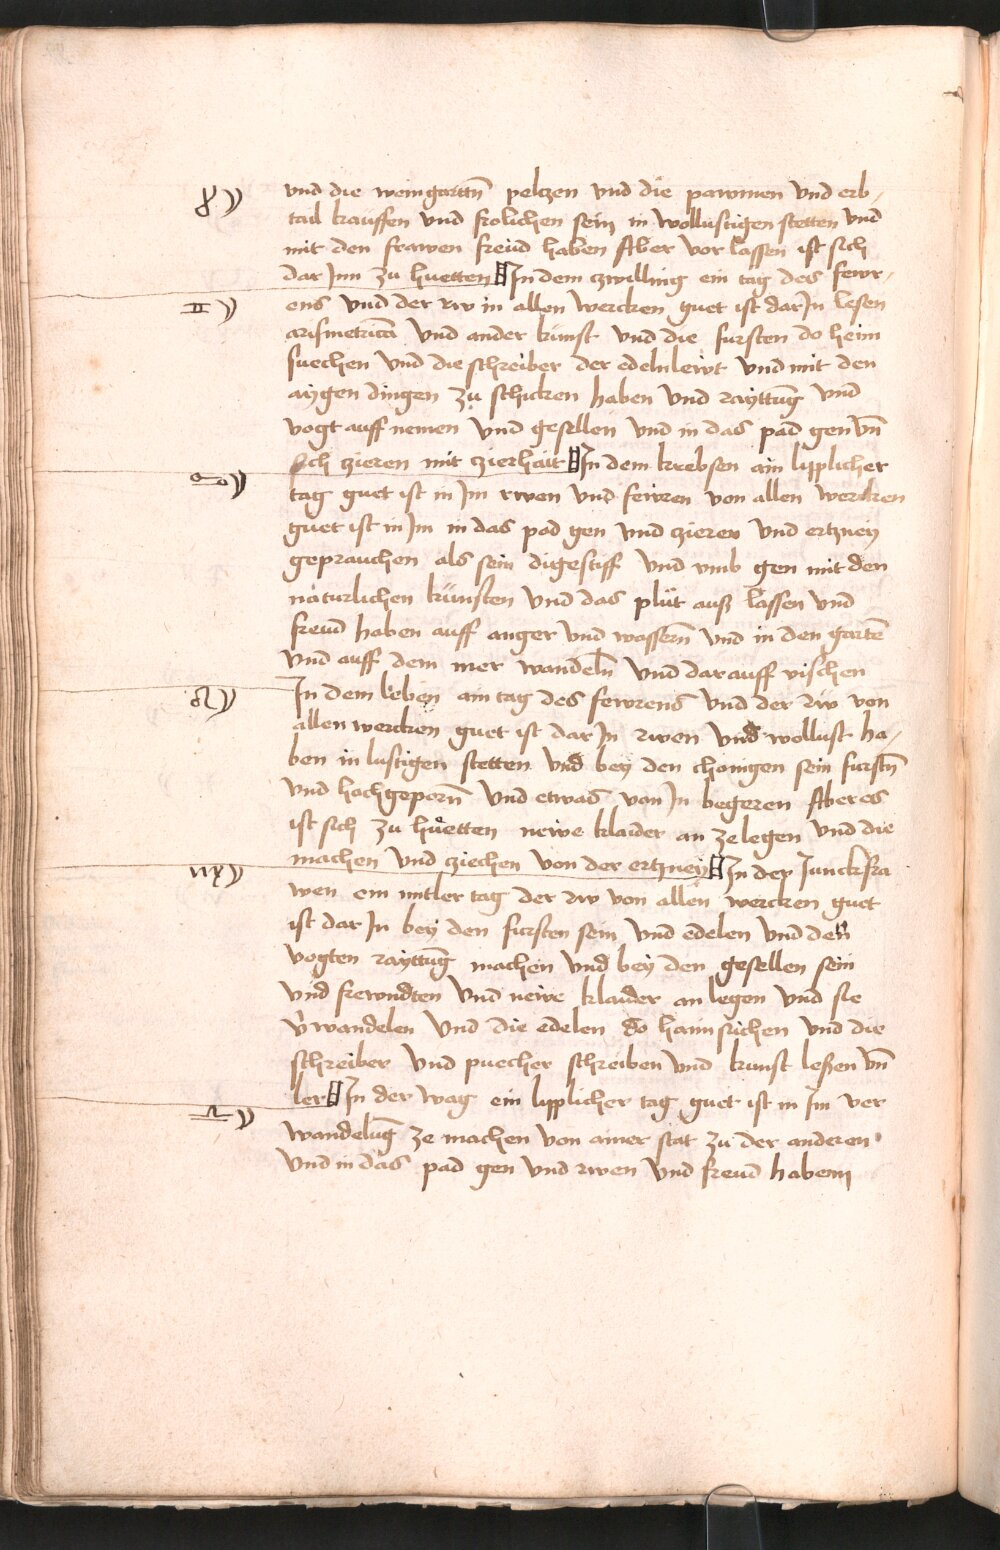 vnd die weingarttn̄ peltzen vnd die pawmen vnd erb⸗
tail kauffen vnd frolichen sein in wollustigen stetten vnd
mit den frawen freud haben Aber vor lassen ist sich
dar Jnn zu huetten Jn dem zwilling ein tag des fewr⸗
ens vnd der rw in allen wercken guet ist dar Jn lesen
arismetricā vnd ander kunst vnd die fursten do heim
suechen vnd die schreiber der edelnlewt vnd mit den
aygen dingen zu schicken haben vnd rayttūg vnd
vogt auff nemen vnd gesellen vnd in das pad gen vn̄
sich zieren mit zierhait Jn dem krebsen ain lipplicher
tag guet ist in Jm rwen vnd feiren von allen wercken
guet ist in Jm in das pad gen vnd zieren vnd ertzney
geprauchen als sein digestiff vnd vmb gen mit den
naturlichen kunsten vnd das plut auß lassen vnd
freud haben auff anger vnd wassern vnd in den gartē
vnd auff dem mer wandeln vnd darauff vischen
Jn dem leben ain tag des fewrens vnd der rw von
allen wercken guet ist dar Jn rwen vnd wollust ha⸗
ben in lustigen stetten vnd bey den chonigen sein furstn̄
vnd hochgeporn̄ vnd etwas von Jn begeren Aber es
ist sich zu huetten newe klaider an ze legen vnd die
machen vnd ziechen von der ertzney Jn der Junckfra
wen ein mitler tag der rw von allen wercken guet
ist dar Jn bey den fursten sein vnd edelen vnd den
vogten rayttūg machen vnd bey den gesellen sein
vnd frewndten vnd newe klaider an legen vnd sie
v̓wandelen vnd die edelen do haim suchen vnd die
schreiber vnd puecher schreiben vnd kunst leßen vn̄
ler Jn der wag ein lipplicher tag guet ist in Jm ver
wandelūg ze machen von ainer stat zu der anderen
vnd in das pad gen vnd rwen vnd freud haben
♉ ☽
♊ ☽
♋ ☽
♌ ☽
♍ ☽
♎ ☽